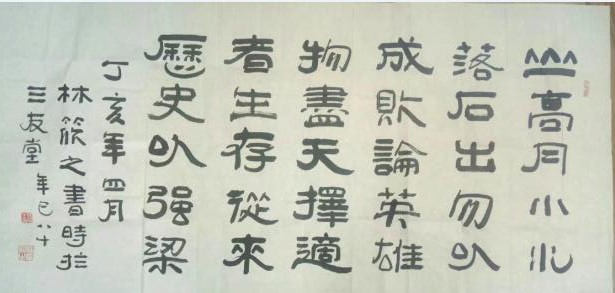 山高月小水
落石出勿以
成败論英雄
物盡天擇適
者生存從來
歷史以强梁
丁亥年四月
林筱之書時於
三友堂年已八十